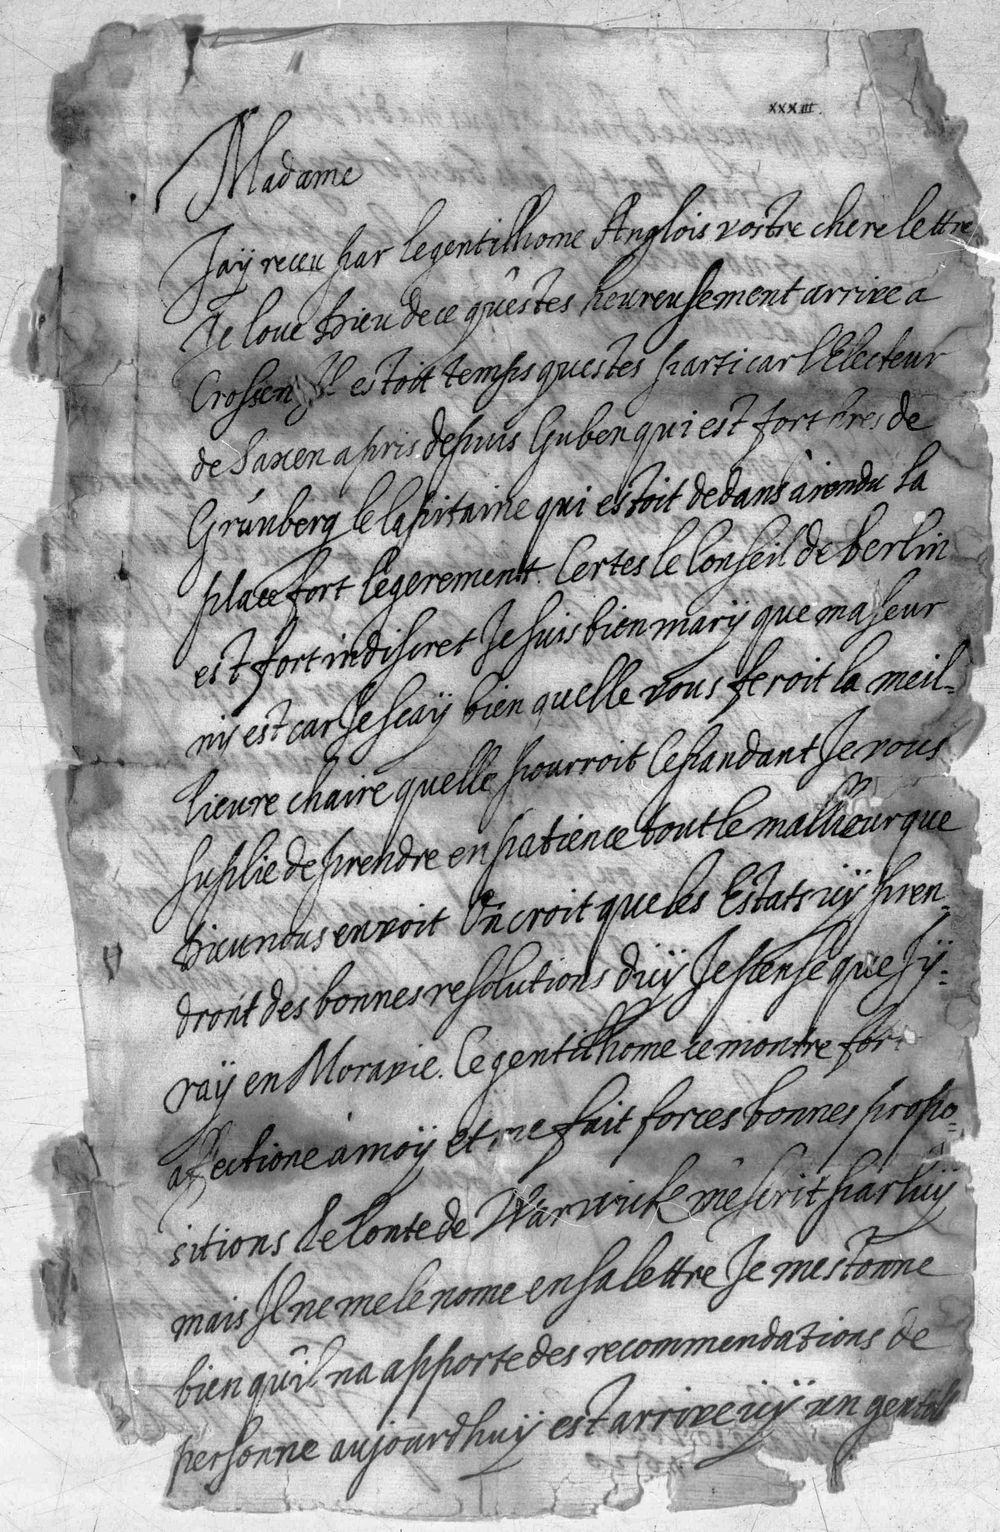 XXXIII.
Madame
Jaÿ receu par le gentilhome Anglois vostre chere lettre
Je loue Dieu de ce qu'estes heureusement arrive a
Crossen Il estoit temps questes parti car l'Electeur
de Saxen a pris depuis Guben qui est fort pres de
Grünberg le Capitaine qui estoit dedans à rendu la
place fort legerement. Certes le Conseil de berlin
est fort indiscret Je suis bien mary que ma seur
nÿ est car Je scaÿ bien quelle vous feroit la meil-
lieure chaire quelle pourroit Cepandant Je vous
suplie de prendre en patience tout le malheur que
Dieu nous envoit On croit que les Estats icÿ pren-
dront des bonnes resolutions d'icÿ Je pense que J'ÿ-
raÿ en Moravie. Ce gentilhome ce montre fort
afectione à moÿ et me fait forces bonnes propo-
sitions le Conte de Warwick m'escrit par luÿ
mais Il ne me le nome en sa lettre Je mestonne
bien qu'il na apporte des recommendations de
personne aujourdhuÿ est arrive icÿ un gentil